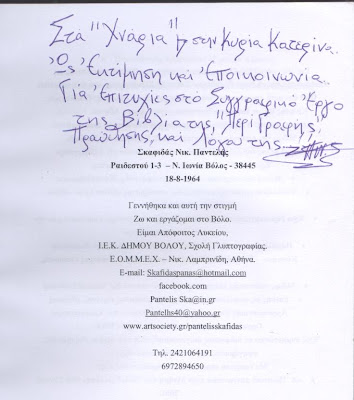 Στα "Χνάρια" στην Κυρία Κατερίνα.
Ως Εκτίμηση και Επικοινωνία.
Για Επιτυχίες στο Συγγραφικό Έργο
της, Βιβλία της, "Περί Γραφής",
και Λόγου της
Σκαφιδάς Νικ. Παντελής
Ραιδεστού 1-3 – Ν. Ιωνία Βόλος - 38445
18-8-1964
Γεννήθηκα και αυτή την στιγμή
Ζω και εργάζομαι στο Βόλο.
Είμαι Απόφοιτος Λυκείου,
Ι.Ε.Κ. ΔΗΜΟΥ ΒΟΛΟΥ, Σχολή Γλυπτογραφίας.
Ε.Ο.Μ.Μ.Ε.Χ. – Νικ. Λαμπρινίδη, Αθήνα.
E-mail: Skafidaspanas@hotmail.com
facebook.com
Pantelis Ska@in.gr
Pantelhs40@yahoo.gr
www.artsociety.gr/pantelisskafidas
Τηλ. 2421064191
6972894650